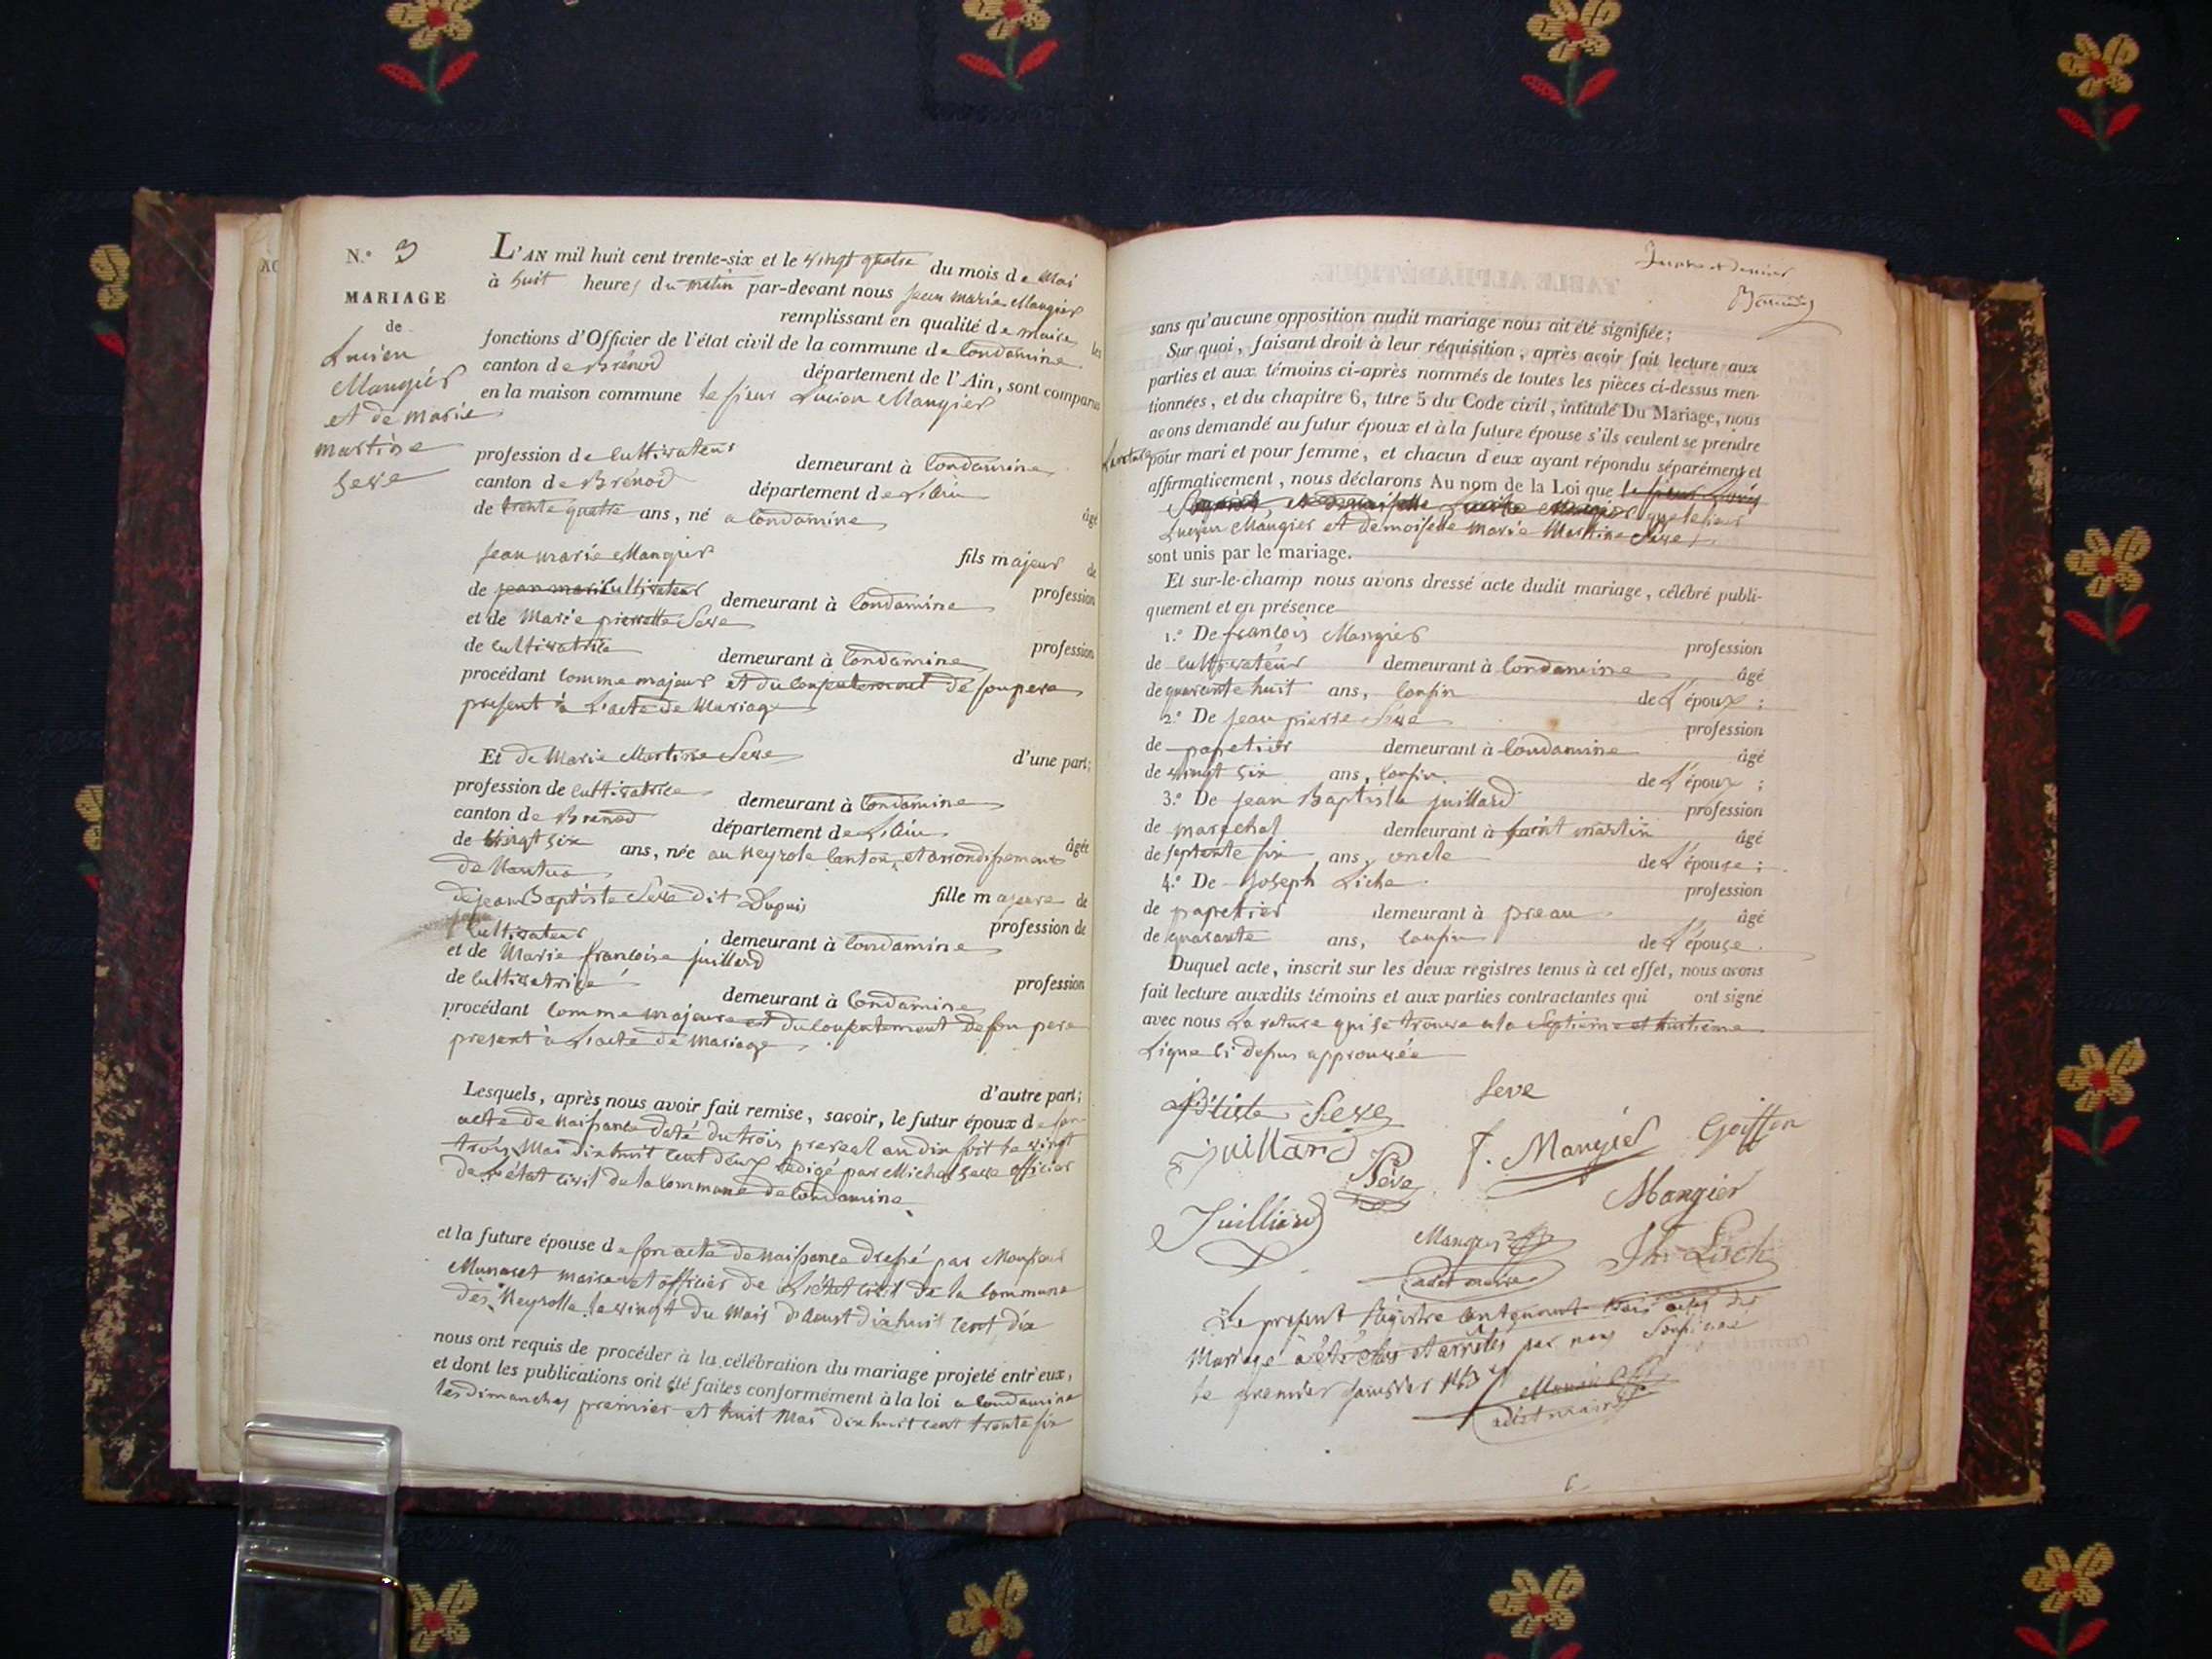 N.° 3
MARIAGE
de
Lucien
Mangier
et de marie
martine
Seve
L'AN mil huit cent trente-six et le vingt quatre du mois de Mai
à huit heures du matin par-devant nous jean marie Mangier
remplissant en qualité de maire les
fonctions d'Officier de l'état civil de la commune de Condamine
canton de Brénod département de l'Ain, sont comparus
en la maison commune le sieur Lucien Mangier
profession de cultivateur demeurant à Condamine
canton de Brénod département de L'Ain âgé
de trente quatre ans, né a Condamine
fils majeur de
jean marie Mangier profession
de jean marie cultivateur demeurant à Condamine
et de Marie pierrette Seve profession
de cultivatrice demeurant à Condamine
procédant comme majeur et du consentement de son pere
present à L'acte de Mariage
d'une part;
Et de Marie Martine Seve
profession de cultivatrice demeurant à Condamine
canton de Brenod département de L'Ain âgée
de vingt six ans, née au Neyrole canton et arrondissement
de Nantua
fille majeure de
de jean Baptiste Seve dit Dupuis profession de
cultivateur demeurant à Condamine
et de Marie françoise juillard profession
de cultivatrice demeurant à Condamine
procédant comme majeure et du consentement de son pere
present à L'acte de Mariage
d'autre part;
Lesquels, après nous avoir fait remise, savoir, le futur époux de son
acte de naissance daté du trois prereal an dix soit le vingt
trois Mai dix huit cent deux redigé par Michel Seve officier
de L'état civil de la commune de Condamine
et la future épouse de son acte de naissance dressé par Monsieur
Munaret maire et officier de L'état civil de la commune
des Neyrolle le vingt du Mois d'Aoust dix huit cent dix
nous ont requis de procéder à la célébration du mariage projeté entr'eux,
et dont les publications ont été faites conformément à la loi a Condamine
les dimanches premier et huit Mai dix huit cent trente six
sans qu'aucune opposition audit mariage nous ait été signifiée;
Sur quoi, faisant droit à leur réquisition, après avoir fait lecture aux
parties et aux témoins ci-après nommés de toutes les pièces ci-dessus men-
tionnées, et du chapitre 6, titre 5 du Code civil, intitulé Du Mariage, nous
avons demandé au futur époux et à la future épouse s'ils veulent se prendre
pour mari et pour femme, et chacun d'eux ayant répondu séparément et
affirmativement, nous déclarons Au nom de la Loi que le sieur
et demoiselle que le sieur
Lucien Mangier et demoiselle Marie Martine Seve
sont unis par le mariage.
Et sur-le-champ nous avons dressé acte dudit mariage, célébré publi-
quement et en présence
1.° De françois Mangier profession
de cultivateur demeurant à Condamine âgé
de quarante huit ans, cousin de L'époux;
2.° De jean pierre Seve profession
de papetier demeurant à Condamine âgé
de vingt six ans, cousin de L'époux;
3.° De jean Baptiste juillard profession
de marechal demeurant à saint martin âgé
de septante six ans, oncle de L'épouse;
4.° De joseph Liche profession
de papetier demeurant à preau âgé
de quarante ans, cousin de L'épouse.
Duquel acte, inscrit sur les deux registres tenus à cet effet, nous avons
fait lecture auxdits témoins et aux parties contractantes qui ont signé
avec nous La rature qui se trouve a la Septieme et huitieme
Ligne ci dessus approuvée
Btiste Seve Seve
juillard Seve f. Mangier Goiffon
Mangier
Juillard Mangier Jh. Lisch
adjt maire
Le present Registre contenant trois actes de
Mariage a été clos et arrêtés par nous Soussigné
le premier janvier
adjt maire